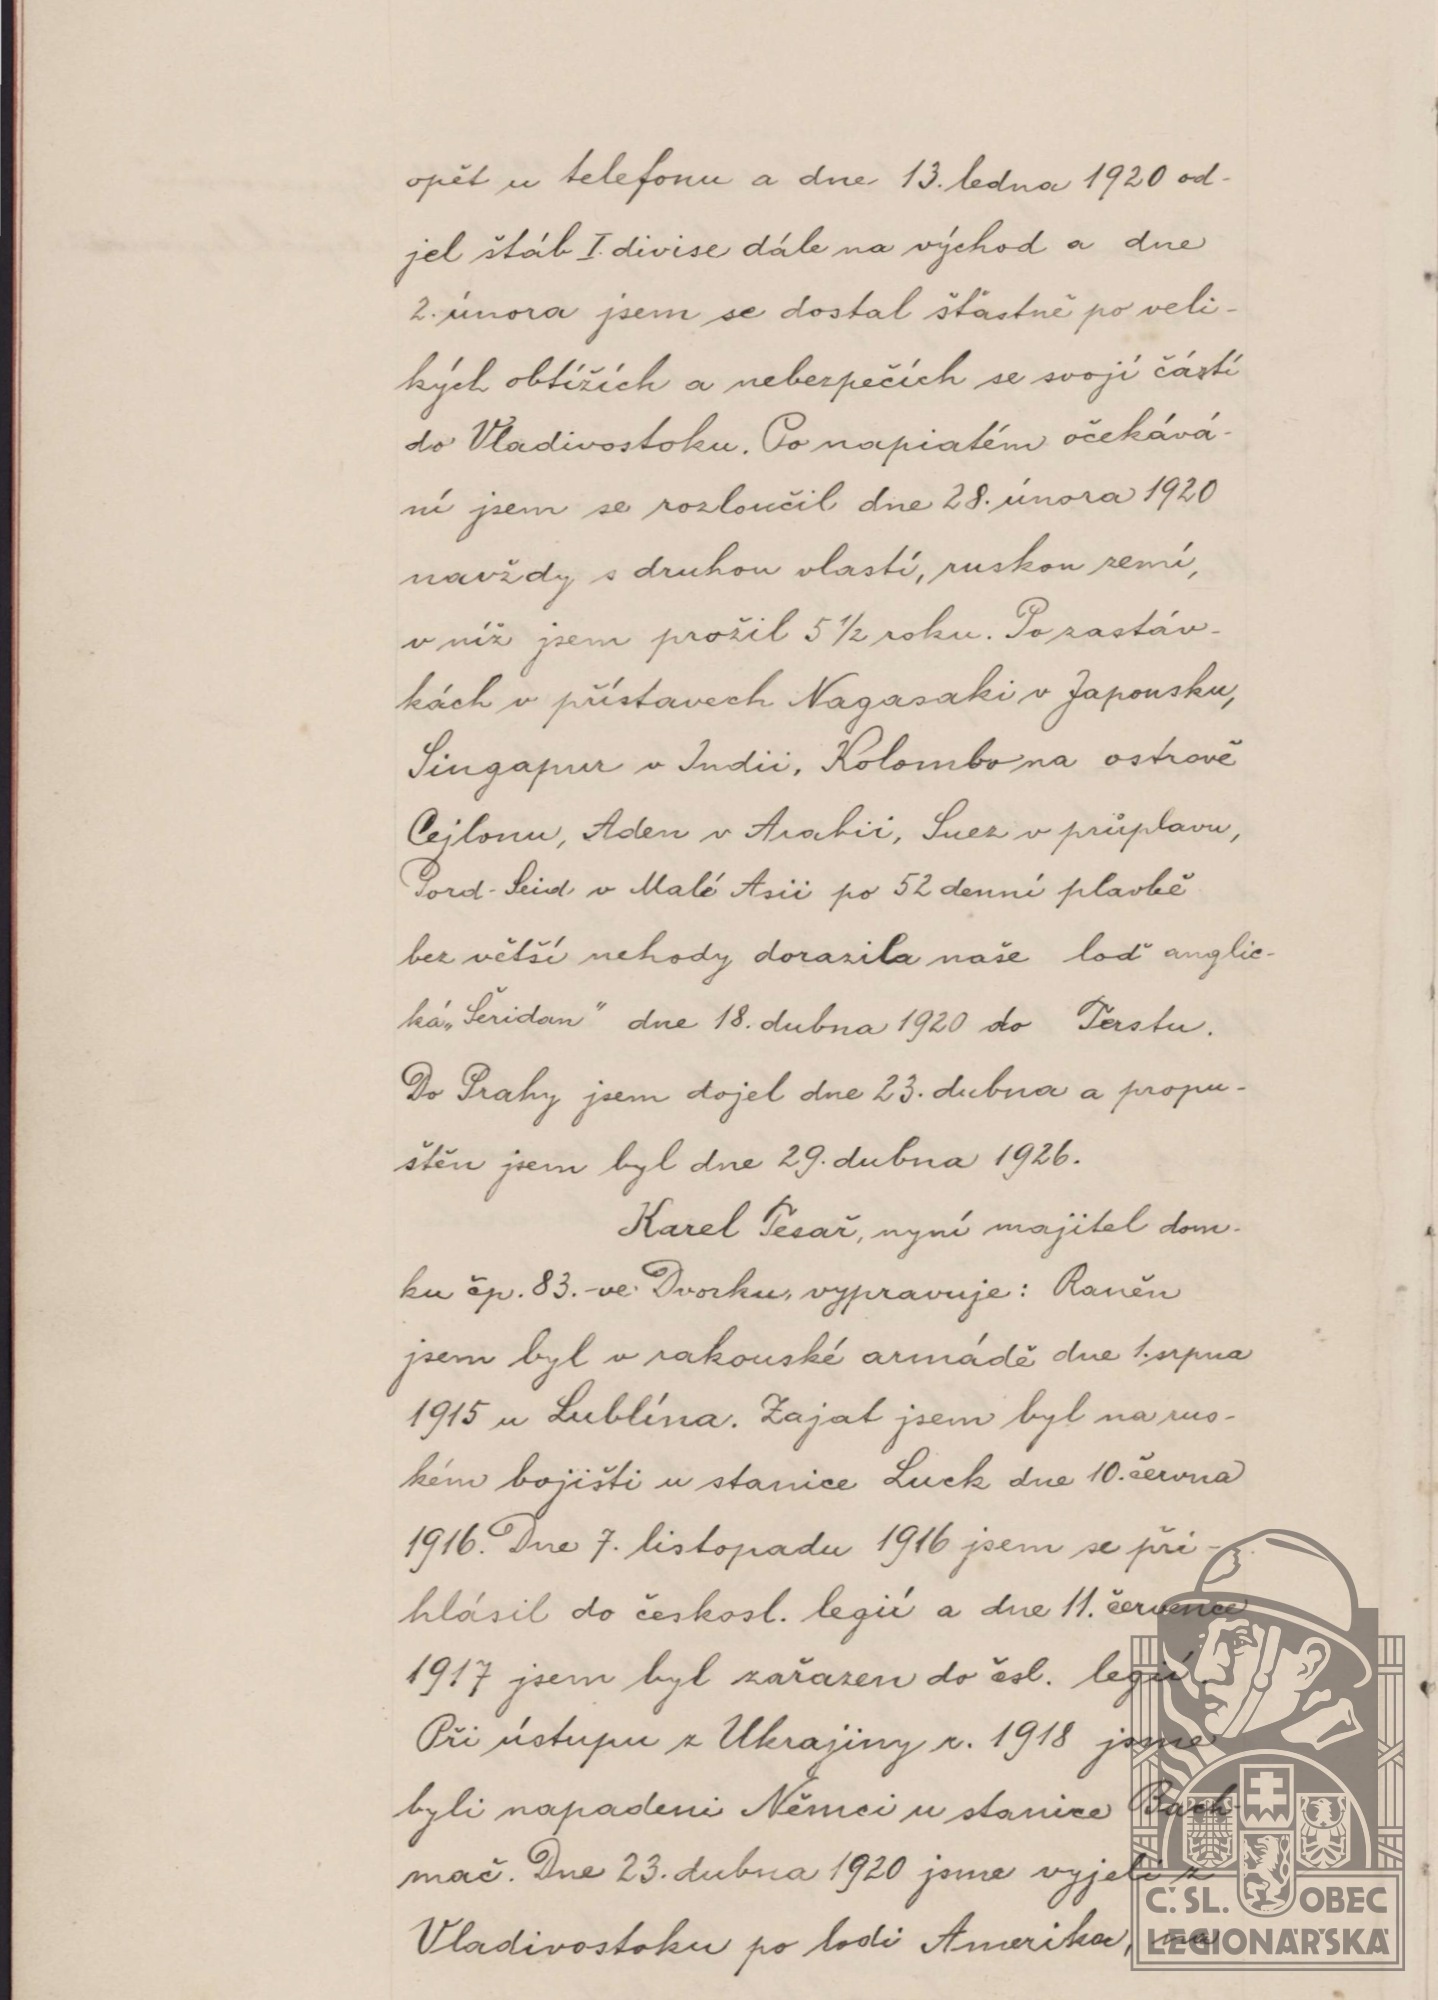 opět u telefonu a dne 13. ledna 1920 od-
jel štáb I. divise dále na východ a dne
2. února jsem se dostal šťastně po veli-
kých obtížích a nebezpečích se svojí částí
do Vladivostoku. Po napiatém očekává-
ní jsem se rozloučil dne 28. února 1920
navždy s druhou vlastí, ruskou zemí,
v níž jsem prožil 5 1/2 roku. Po zastáv-
kách v přístavech Nagasaki v Japonsku,
Singapur v Indii, Kolombo na ostrově
Cejlonu, Aden v Arabii, Suez v průplavu,
Pord-Seid v Malé Asii po 52 denní plavbě
bez větší nehody dorazila naše loď anglic-
ká „Šeridan" dne 18. dubna 1920 do Terstu.
Do Prahy jsem dojel dne 23. dubna a propu-
štěn jsem byl dne 29. dubna 1926.
Karel Tesař, nyní majitel dom-
ku čp. 83. ve Dvorku, vypravuje: Raněn
jsem byl v rakouské armádě dne 1. srpna
1915 u Lublína. Zajat jsem byl na rus-
kém bojišti u stanice Luck dne 10. června
1916. Dne 7. listopadu 1916 jsem se při-
hlásil do českosl. legií a dne 11. července
1917 jsem byl zařazen do čsl. legií.
Při ústupu z Ukrajiny r. 1918 jsme
byli napadeni Němci u stanice Bach-
mač. Dne 23. dubna 1920 jsme vyjeli z
Vladivostoku po lodi Amerika, na
Č. SL. OBEC
LEGIONÁŘSKÁ